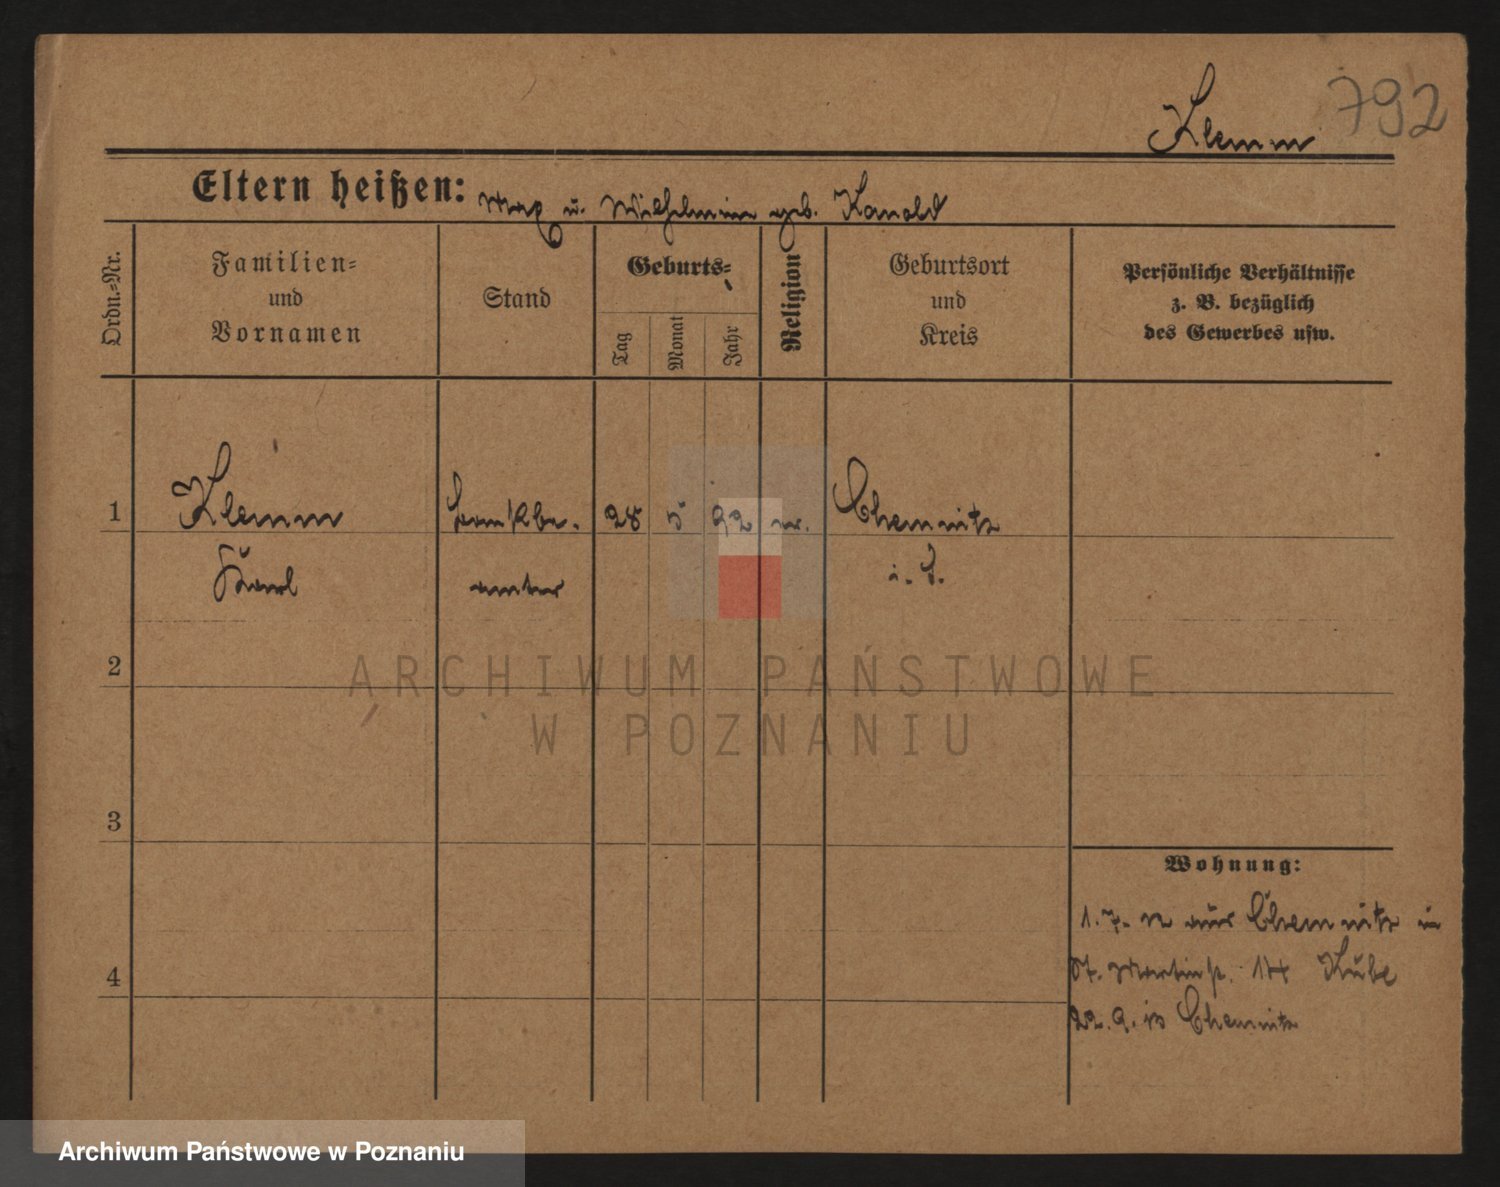 Klemm 792
Eltern heißen: Max u. Wilhelmine geb. Kanold
Ordn.=Nr.
Familien=
und
Vornamen
Stand
Geburts=
Tag
Monat
Jahr
Religion
Geburtsort
und
Kreis
Persönliche Verhältnisse
z. B. bezüglich
des Gewerbes usw.
1 Klemm Bankbe- 28 5 92 ev. Chemnitz
Karl amter i. S.
2
ARCHIWUM PAŃSTWOWE
W POZNANIU
3
Wohnung:
1. 7. 12 aus Chemnitz in
St. Martinstr. Kube
4
22. 9. 13 Chemnitz
Archiwum Państwowe w Poznaniu